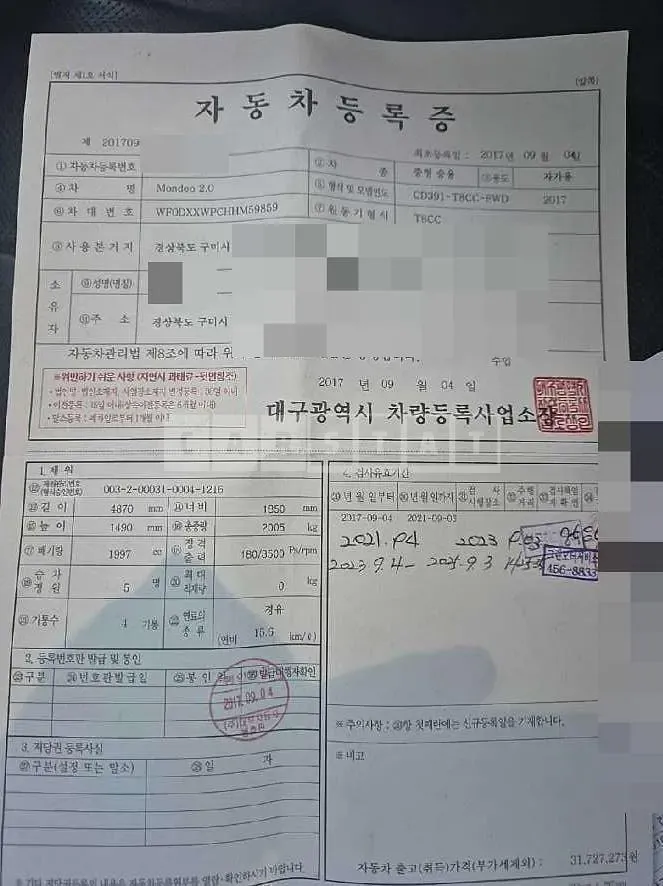 [별지 제1호 서식]
(앞쪽)
자동차등록증
제 201709
최초등록일 : 2017년 09월 04일
①자동차등록번호 ②차 종 중형 승용 ③용도 자가용
④차 명 Mondeo 2.0 ⑤형식 및 모델연도 CD391-T8CC-FWD 2017
⑥차대번호 WF0DXXWPCHHM59859 ⑦원동기형식 T8CC
⑧사용본거지 경상북도 구미시
소유자
⑨성명(명칭)
⑪주 소 경상북도 구미시
자동차관리법 제8조에 따라 위
수입
※위반하기 쉬운 사항
2017 년 09 월 04 일
대구광역시 차량등록사업소장
CARSTAT
1. 제 원
003-2-00031-0004-1216
⑬길이 4870 mm ⑭너비 1850 mm
⑮높이 1490 mm ⑯총중량 2005 kg
⑰배기량 1997 cc ⑱정격출력 180/3500 Ps/rpm
⑲승차정원 5 명 ⑳최대적재량 0 kg
㉑기통수 4 기통 ㉒연료의 종류 경유
(연비 15.6 km/ℓ)
2. 등록번호판 발급 및 봉인
㉓구분 ㉔번호판발급일 ㉕봉인일 ㉖발급대행자확인
2017.09.04
3. 저당권 등록사실
㉗구분(설정 또는 말소) ㉘일 자
4. 검사유효기간
㉙년월일부터 ㉚년월일까지 ㉛검사시행장소 ㉜주행거리 ㉝검사책임자확인
2017-09-04 2021-09-03
2021. 9.4 2023 9.03
2023 9.4 - 2025.9.3
456-8833
※주의사항 : ㉙항 첫째란에는 신규등록일을 기재합니다.
※비고
자동차 출고(취득)가격(부가세제외) : 31,727,273원